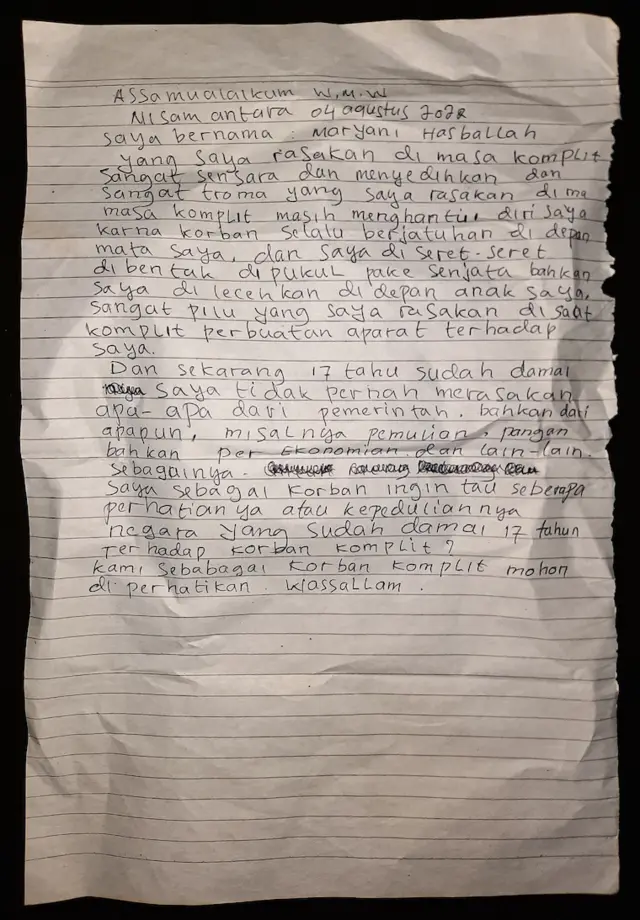 Assamualaikum W.M.W
Nisam antara 04 agustus 2022
saya bernama : Maryani Hasballah
yang saya rasakan di masa komplit
sangat sensara dan menyedihkan dan
sangat troma yang saya rasakan di ma
masa komplit masih menghantui diri saya
karna korban selalu berjatuhan di depan
mata saya, dan saya di seret-seret
di bentak di pukul pake senjata bahkan
saya di lecehkan di depan anak saya,
sangat pilu yang saya rasakan di saat
komplit perbuatan aparat terhadap
saya.
Dan sekarang 17 tahu sudah damai
saya tidak pernah merasakan
apa-apa dari pemerintah. bahkan dari
apapun, misalnya pemulian, pangan
bahkan per ekonomian dan lain-lain.
sebagainya.
Saya sebagai korban ingin tau seberapa
perhatian ya atau kepeduliannya
negara yang sudah damai 17 tahun
ter hadap korban komplit?
kami sebabagai korban komplit mohon
di perhatikan. Wassallam.